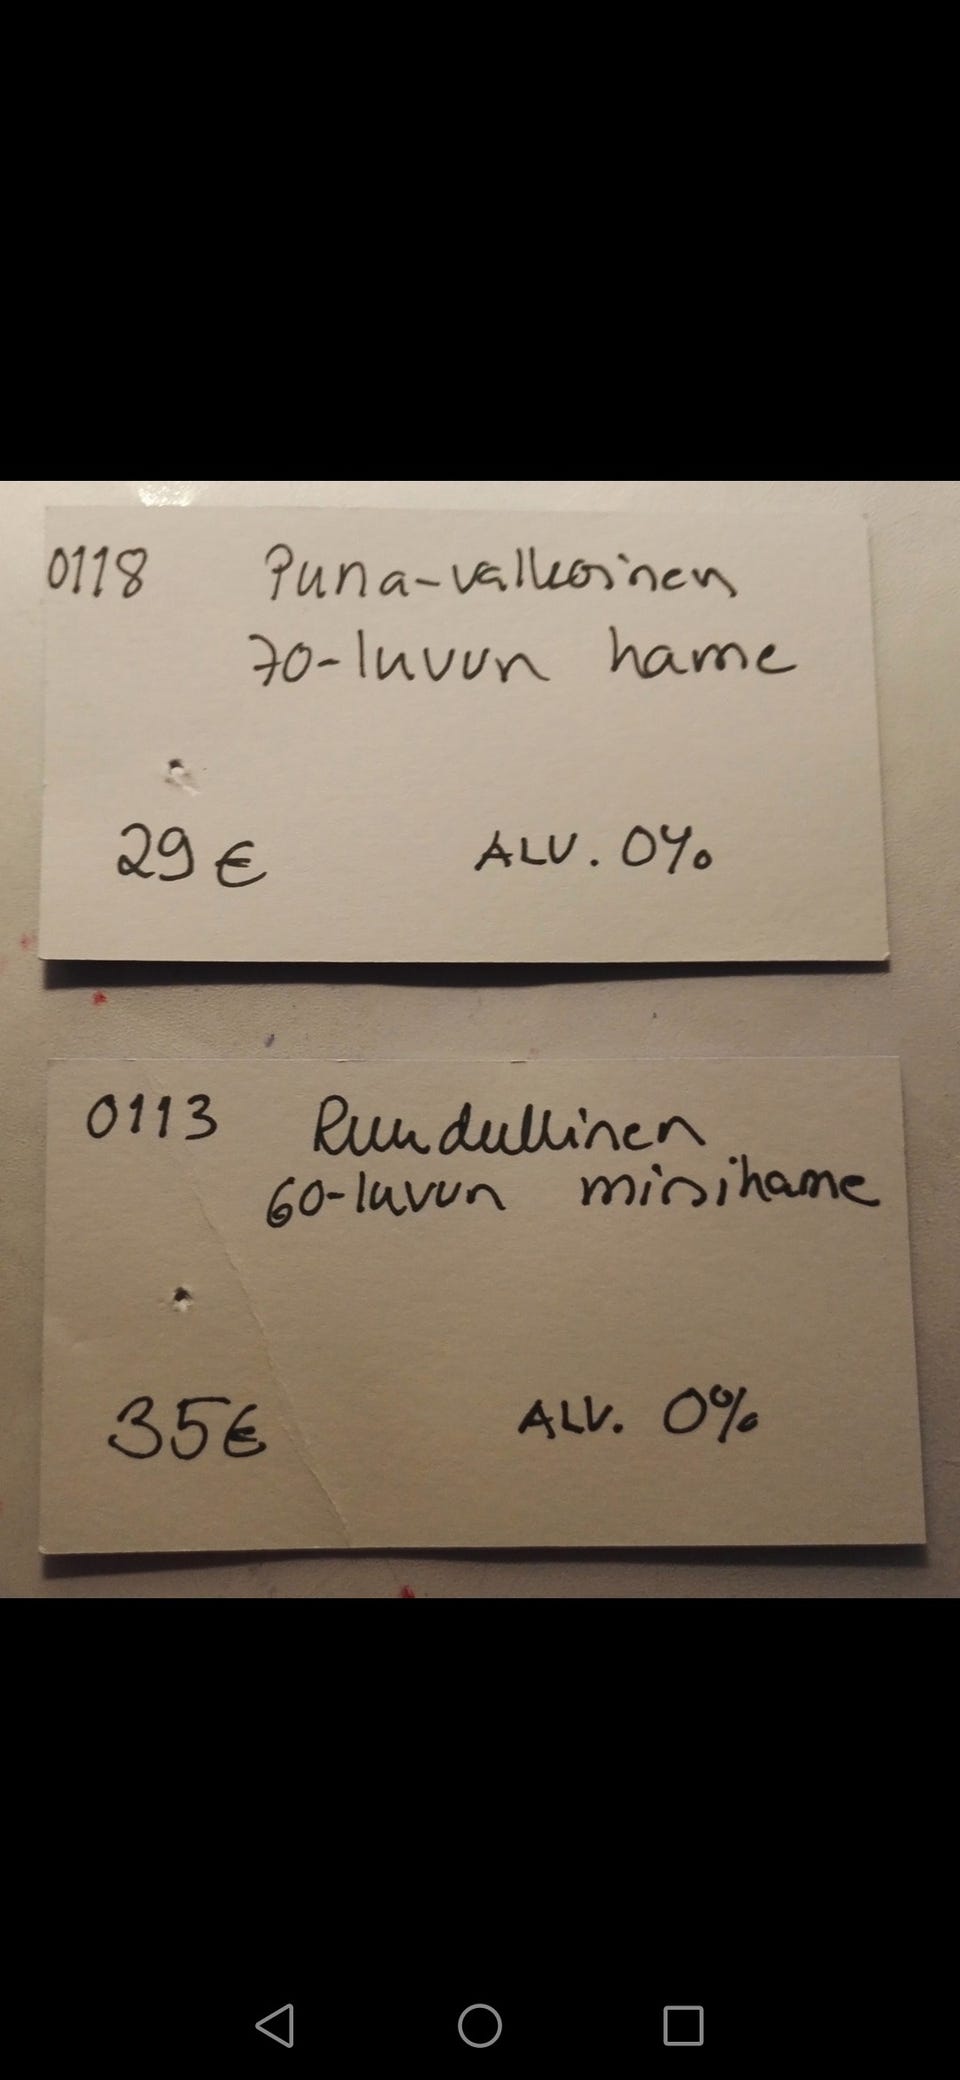 0118 Puna-valkoinen
70-luvun hame
29 € ALV. 0%
0113 Ruudullinen
60-luvun minihame
35€ ALV. 0%